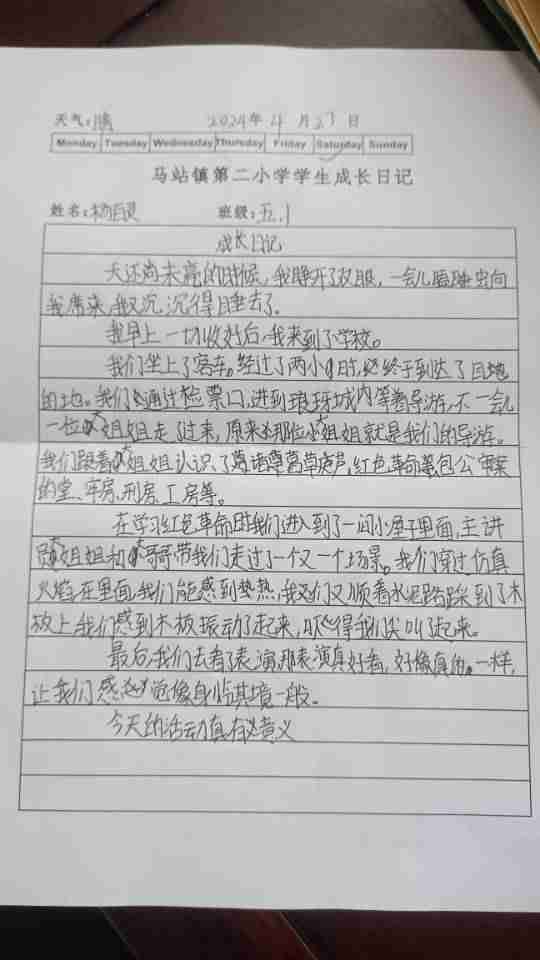 天气:晴 2024年 4 月 27 日
Monday Tuesday Wednesday Thursday Friday Saturday Sunday
马站镇第二小学学生成长日记
姓名: 班级:五.1
成长日记
天还尚未亮的时候,我睁开了双眼,一会儿瞌睡虫向
我席来,我又沉沉得睡去了。
我早上一切收好后,我来到了学校。
我们坐上了客车。经过了两小时,终于到达了目地
的地。我们通过检票口,进到琅琊城内等着导游,不一会儿
一位大姐姐走了过来,原来那位大姐姐就是我们的导游。
我们跟着大姐姐认识了诸葛草庐,红色革命,包公审案
的堂、牢房、刑房、工房等。
在学习红色革命时我们进入到了一间小屋子里面,主讲
大姐姐和大哥哥带我们走过了一个又一个场景。我们穿过仿真
火焰在里面我们能感到热,我们又顺着水泥路踩到了木
板上我们感到木板振动了起来,吓得我们尖叫了起来。
最后,我们去看了表演那表演真好看,好像真的一样,
让我们感觉像身临其境一般。
今天的活动真有意义